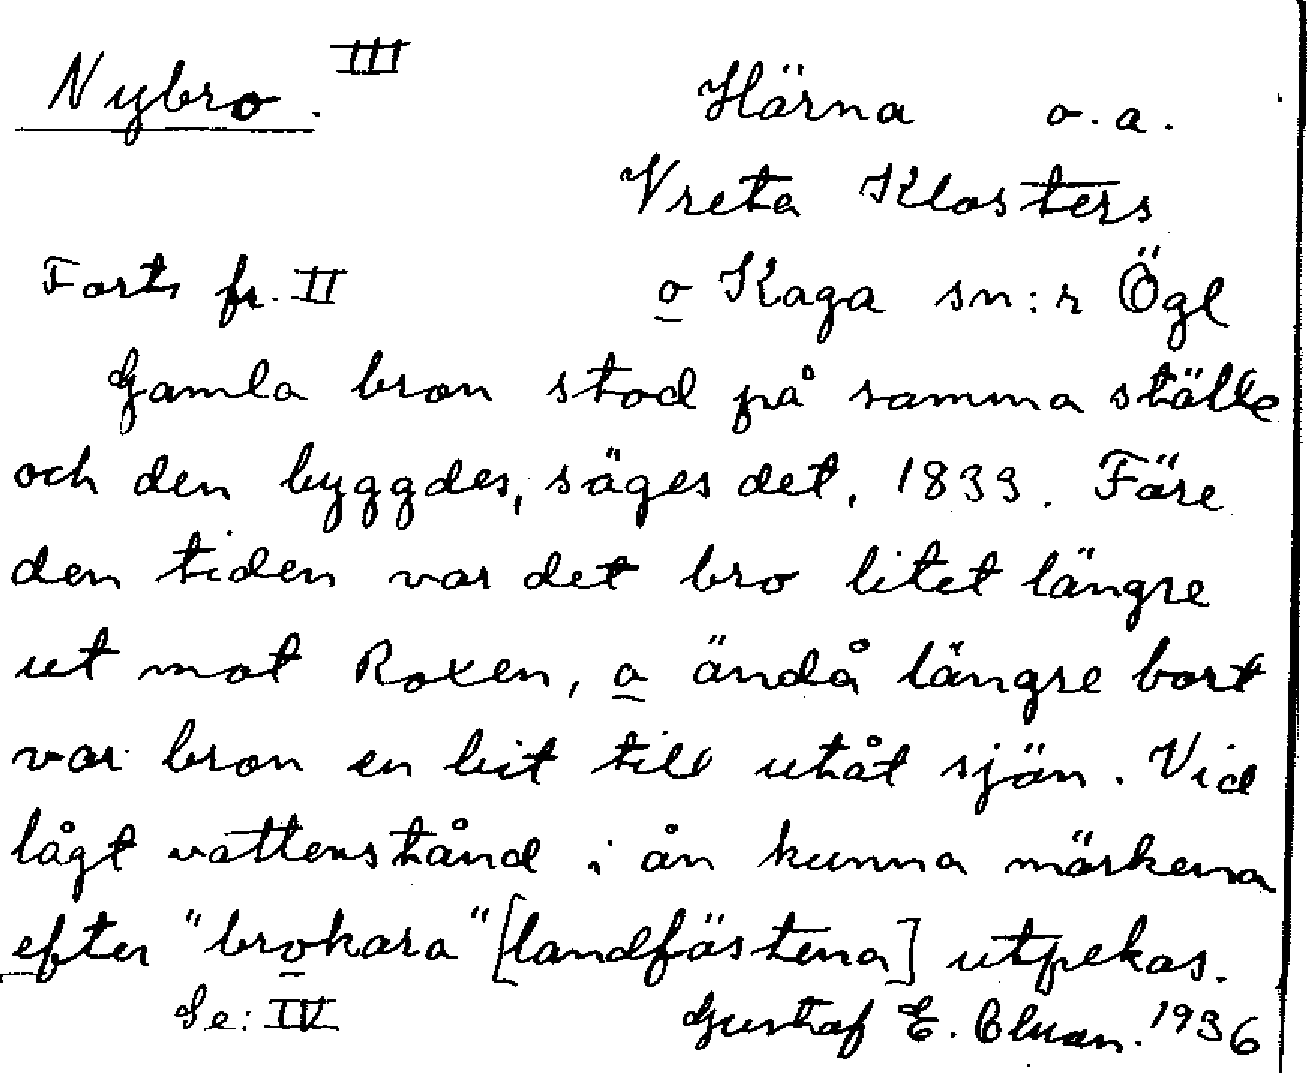 Nybro. III
Härna o.a.
Vreta Klosters
Forts fr. II
o Kaga sn:r Ögl
Gamla bron stod på samma ställe
och den byggdes, säges det, 1833. Före
den tiden var det bro litet längre
ut mot Roxen, o ändå längre bort
var bron en bit till utåt sjön. Vid
lågt vattenstånd i ån kunna märkena
efter "brokara" [landfästena] utpekas.
Se: IV
Gustaf E. Clman. 1936